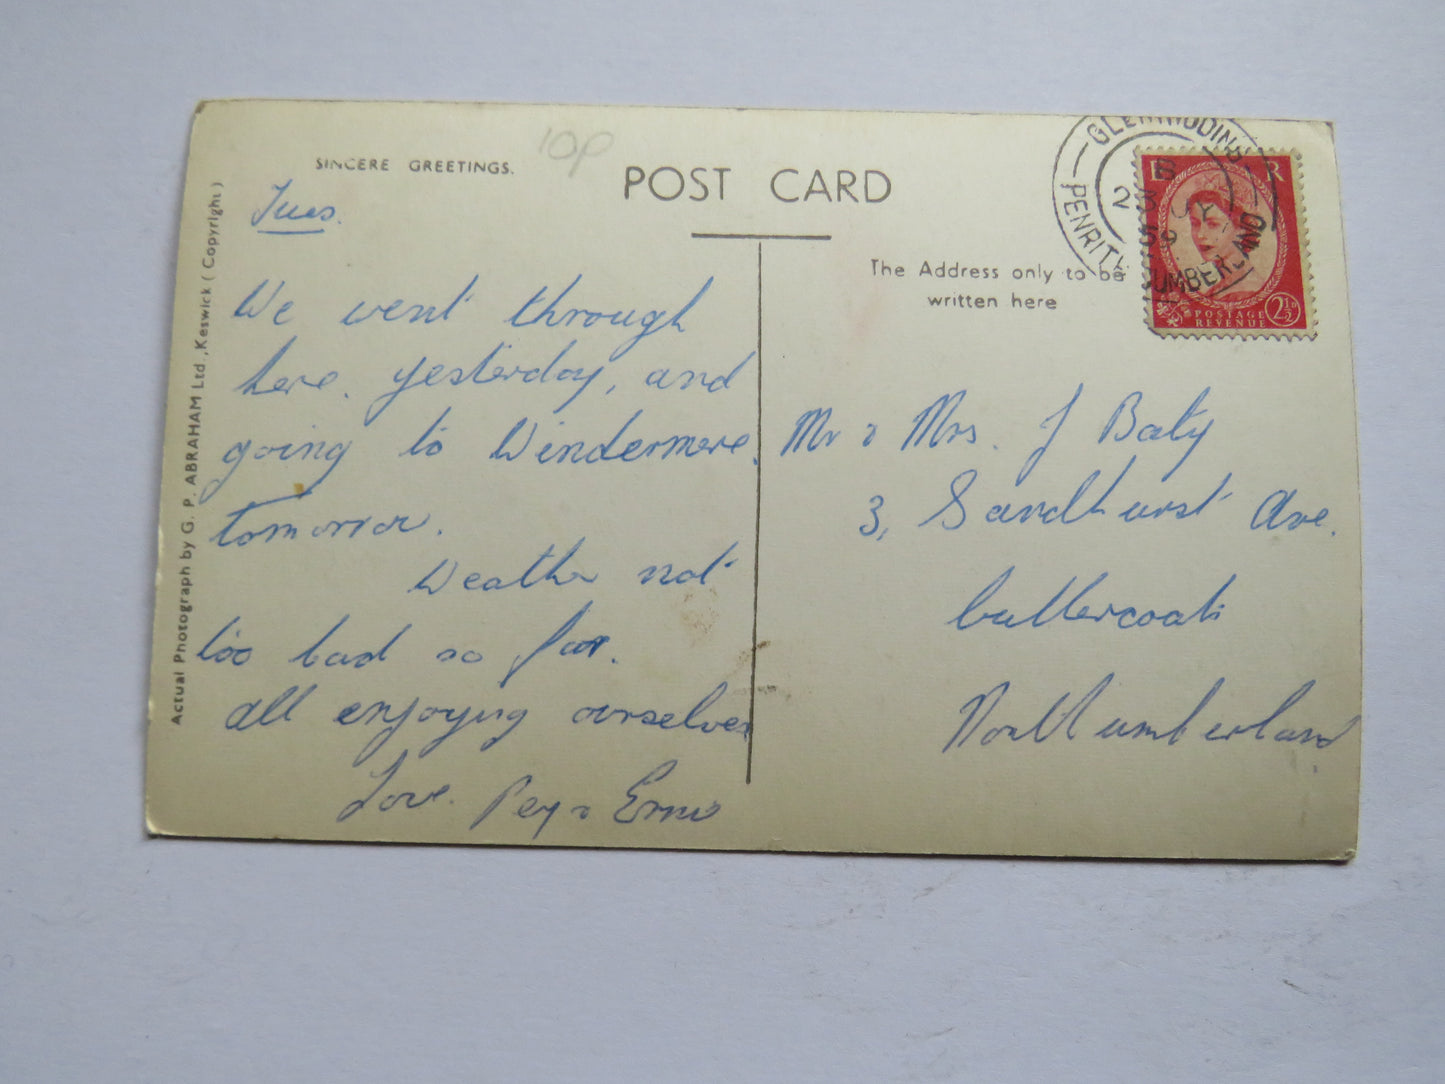 SINCERE GREETINGS.
10p
POST CARD
Tues.
We went through
here. yesterday, and
going to Windermere.
tomorrow.
Weather not
too bad so far.
all enjoying ourselves
Love. Peg & Ernie
Actual Photograph by G. P. ABRAHAM Ltd., Keswick (Copyright)
The Address only to be
written here
GLENRIDDING
PENRITH CUMBERLAND
B
23 JY
59
E R
POSTAGE
REVENUE
2½D
Mr & Mrs. J Baty
3, Sandhurst Ave.
Cullercoats
Northumberland